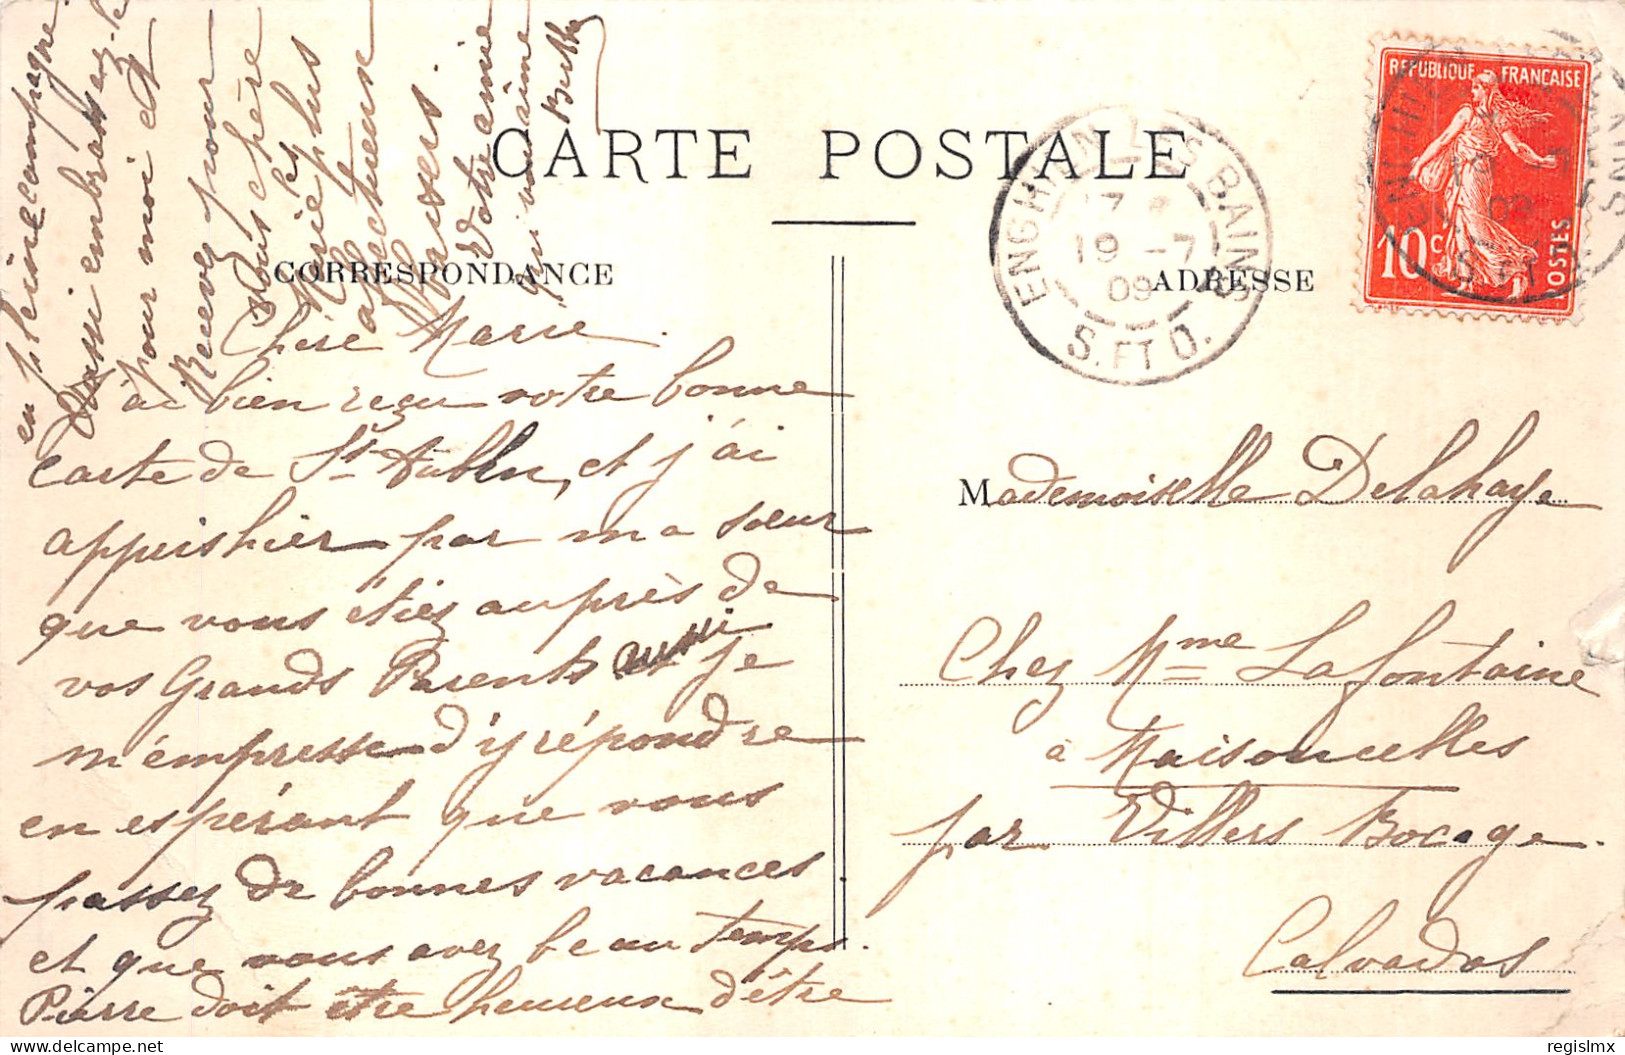 CARTE POSTALE
CORRESPONDANCE
ADRESSE
REPUBLIQUE FRANÇAISE
10c
POSTES
ENGHIEN LES BAINS
17
19 -7
09
S. ET O.
ENGHIEN LES BAINS
19 -7
09
S. ET O.
Chère Marie.
J'ai bien reçu votre bonne
carte de St Aubin, et j'ai
appris hier par ma sœur
que vous étiez auprès de
vos Grands Parents aussi je
m'empresse d'y répondre
en espérant que vous
passez de bonnes vacances
et que vous avez beau temps.
Pierre doit être heureux d'être
en pleine campagne.
Aussi embrassez-le
pour moi et
Recevez pour
vous chère
Marie les
plus
affectueux
Baisers.
Votre amie
qui vous aime
Berthe
Mademoiselle Delahaye
Chez Mme Lafontaine
à Maisoncelles
par Villers Bocage.
Calvados
regislmx
delcampe.net